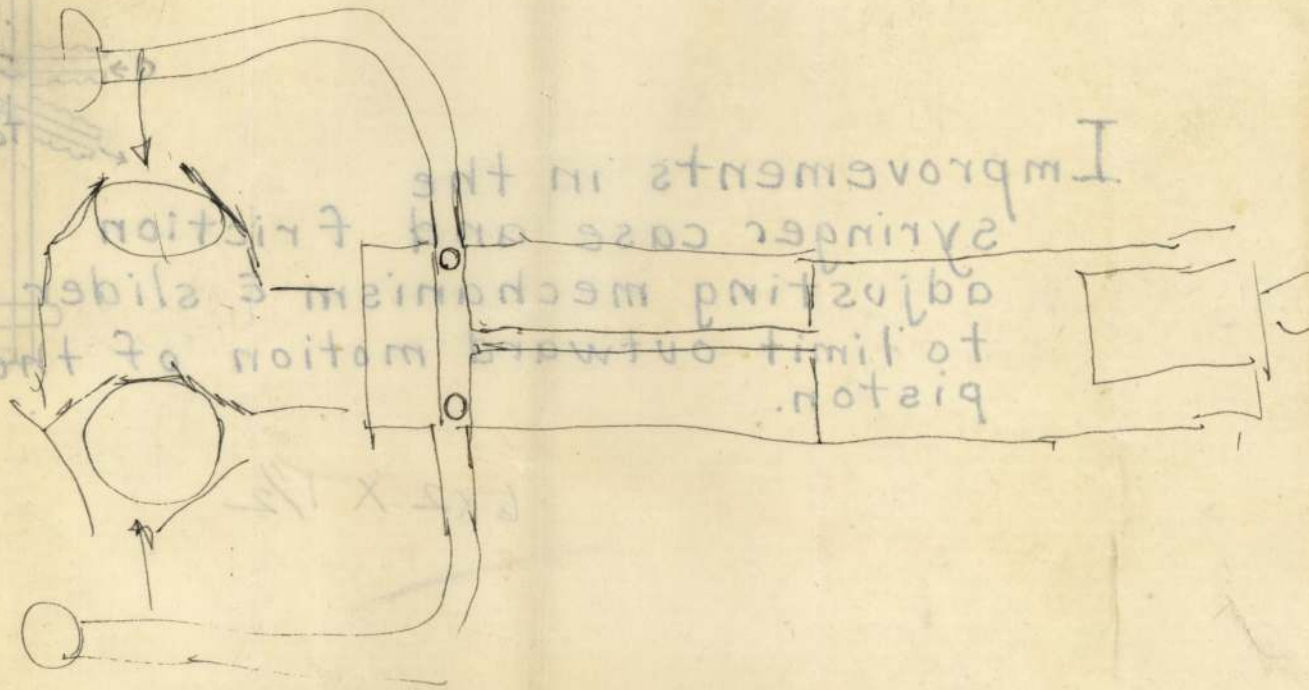 Improvements in the
syringes case and friction
adjusting mechanism & slides
to limit outward motion of the
piston.
X 1 1/2